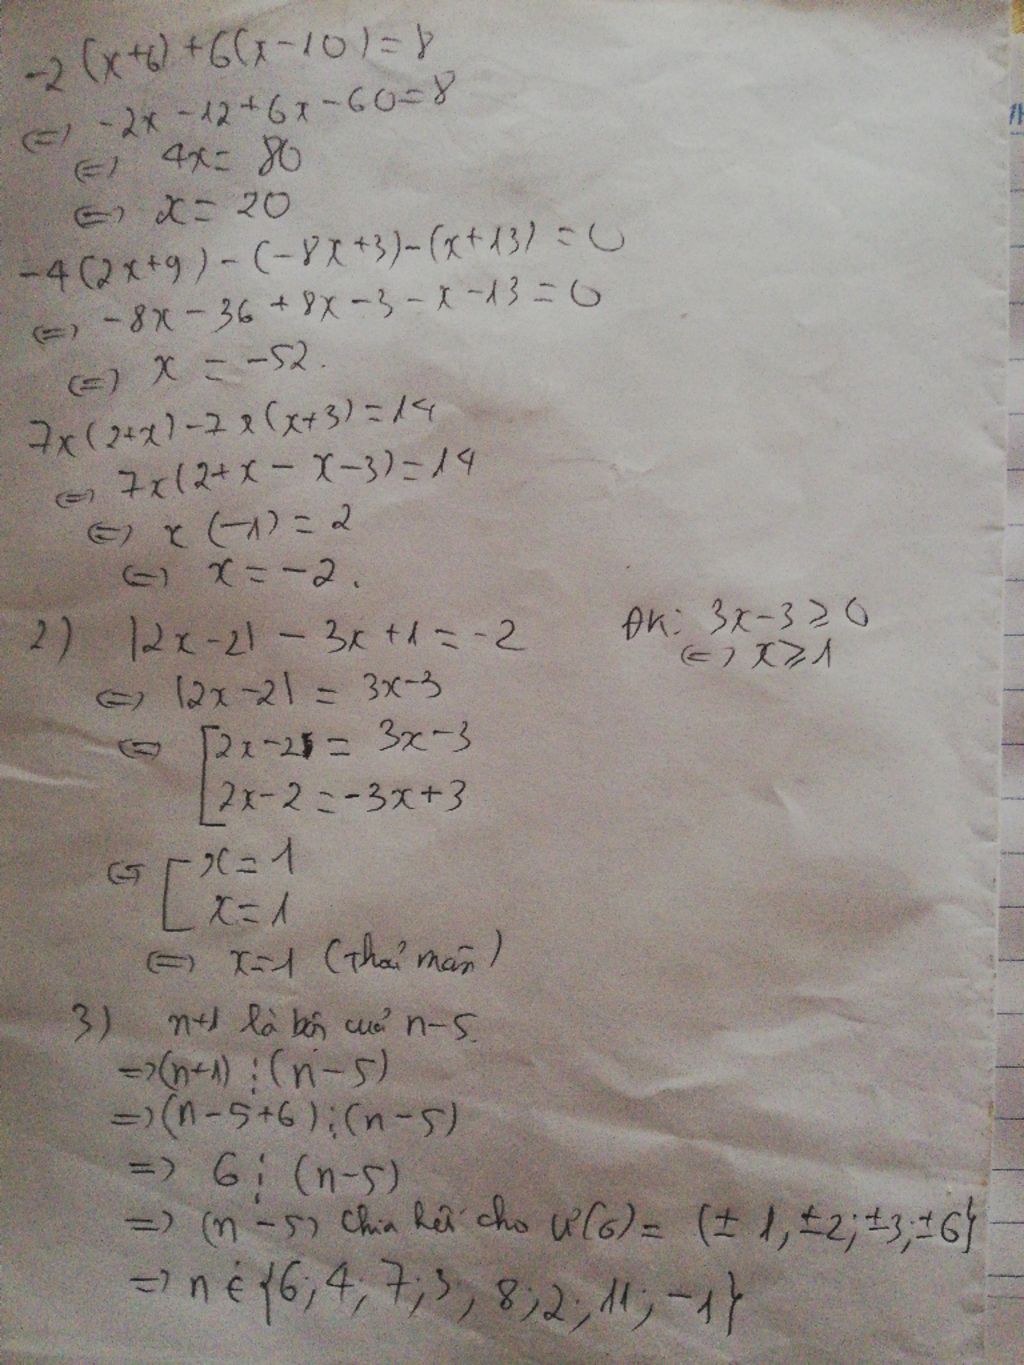 -2(x+6)+6(x-10)=8
⇔ -2x-12+6x-60=8
⇔ 4x= 80
⇔ x= 20
-4(2x+9)-(-8x+3)-(x+13)=0
⇔ -8x-36+8x-3-x-13=0
⇔ x = -52.
7x(2+x)-7x(x+3)=14
⇔ 7x(2+x-x-3)=14
⇔ x(-1)=2
⇔ x=-2.
2) |2x-2|-3x+1=-2 ĐK: 3x-3≥0
⇔ x≥1
⇔ |2x-2|= 3x-3
⇔ [2x-2= 3x-3
2x-2=-3x+3
⇔ [x=1
x=1
⇔ x=1 (Thoả mãn)
3) n+1 là bội của n-5.
=>(n+1)⋮(n-5)
=>(n-5+6)⋮(n-5)
=> 6⋮(n-5)
=> (n-5) chia hết cho Ư(6)= (±1,±2;±3;±6}
=> n∈{6;4;7;3,8;2;11;-1}